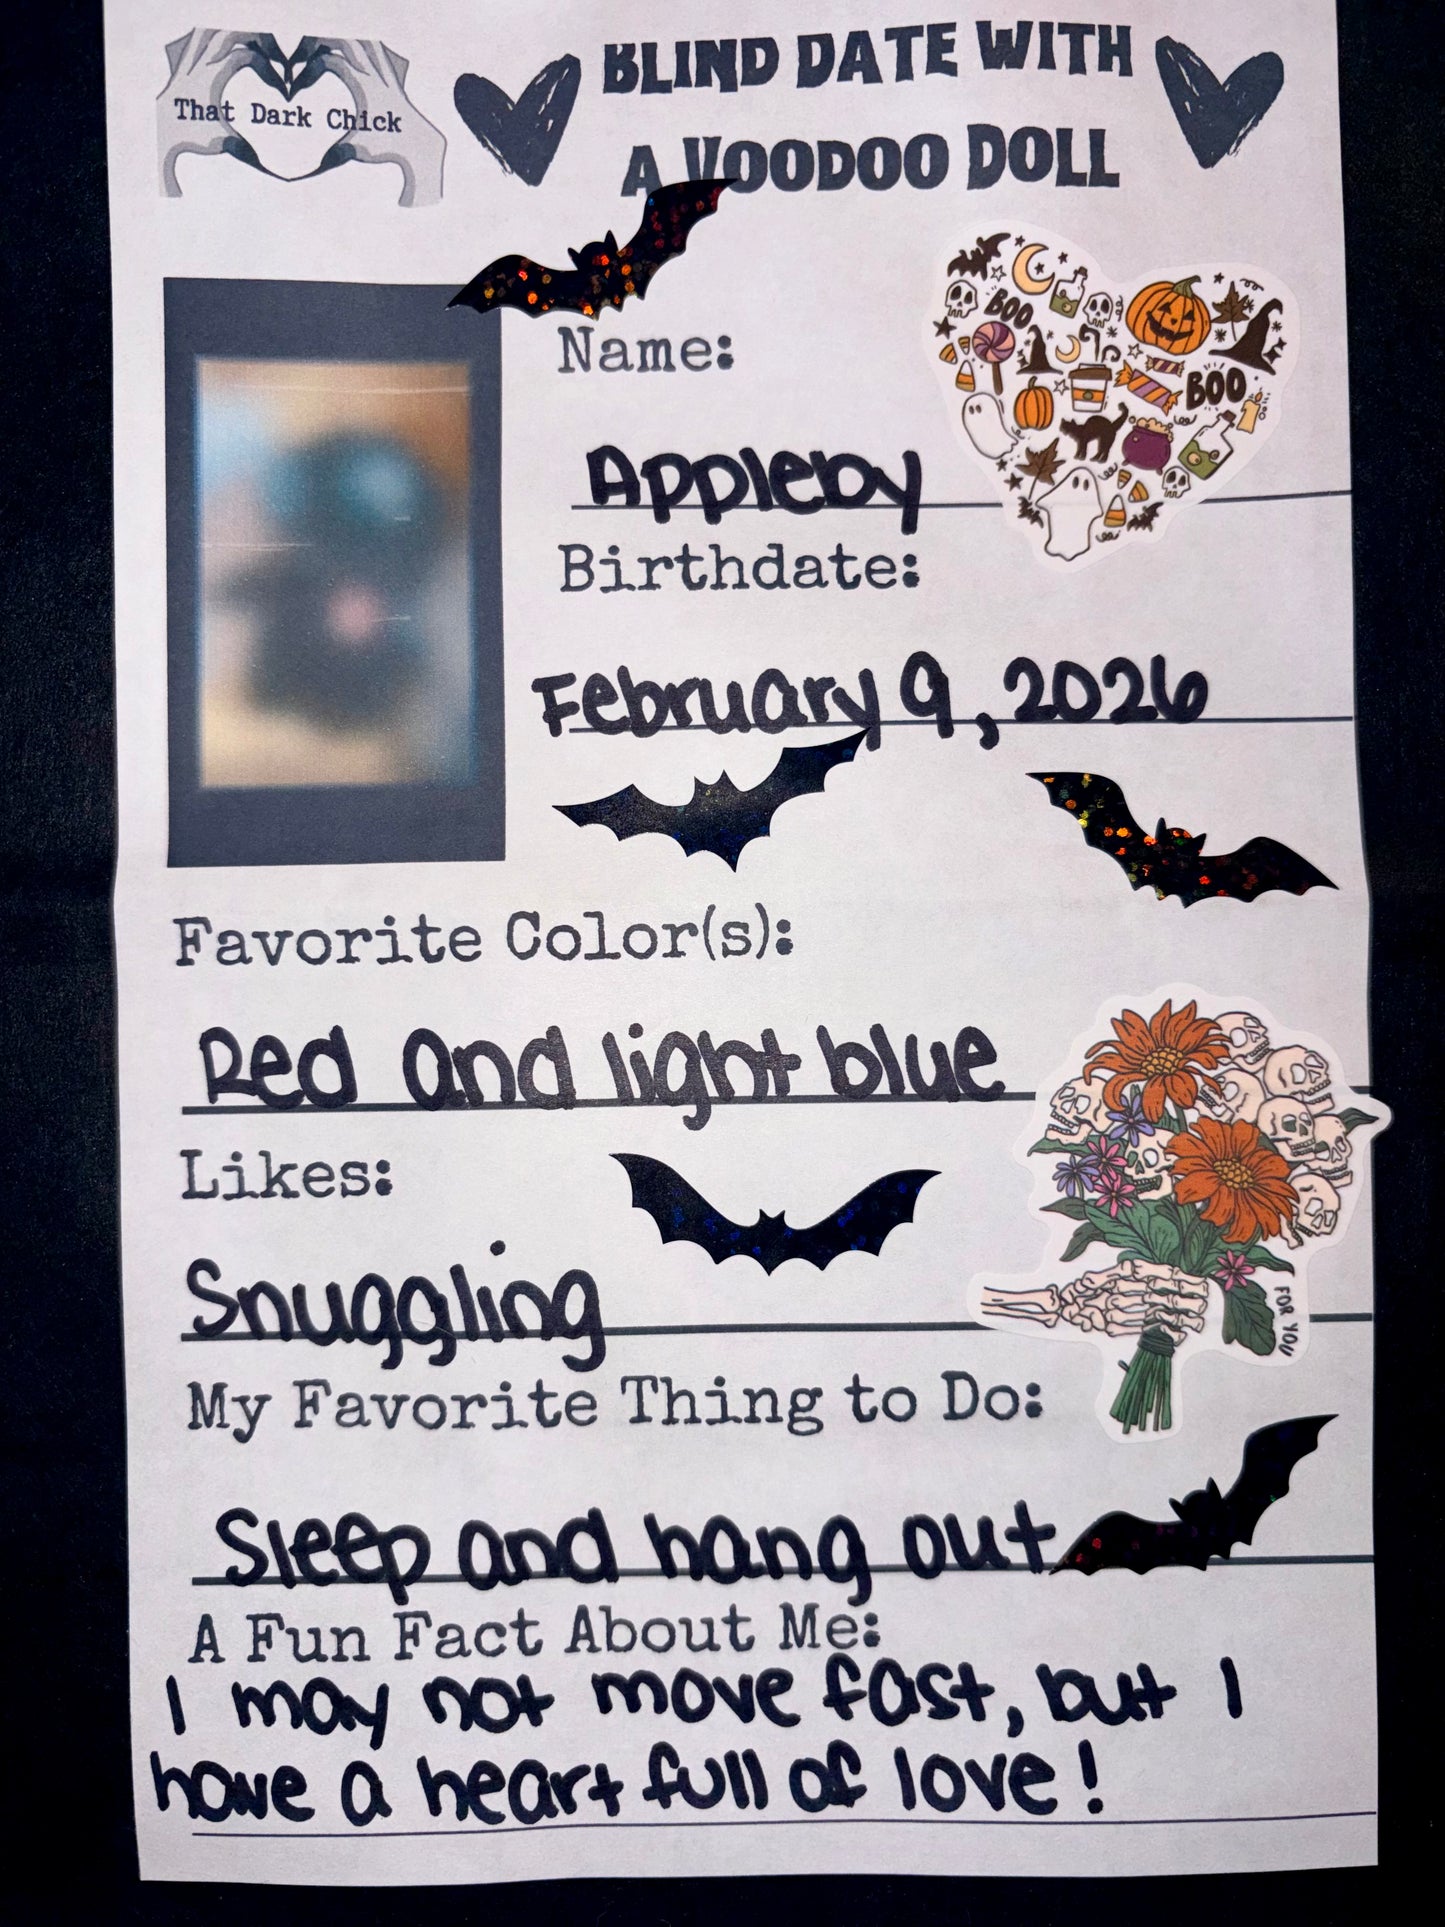 That Dark Chick
BLIND DATE WITH
A VOODOO DOLL
Name:
Appleby
Birthdate:
February 9, 2026
BOO
BOO
Favorite Color(s):
Red and light blue
Likes:
Snuggling
FOR YOU
My Favorite Thing to Do:
Sleep and hang out
A Fun Fact About Me:
I may not move fast, but I
have a heart full of love!